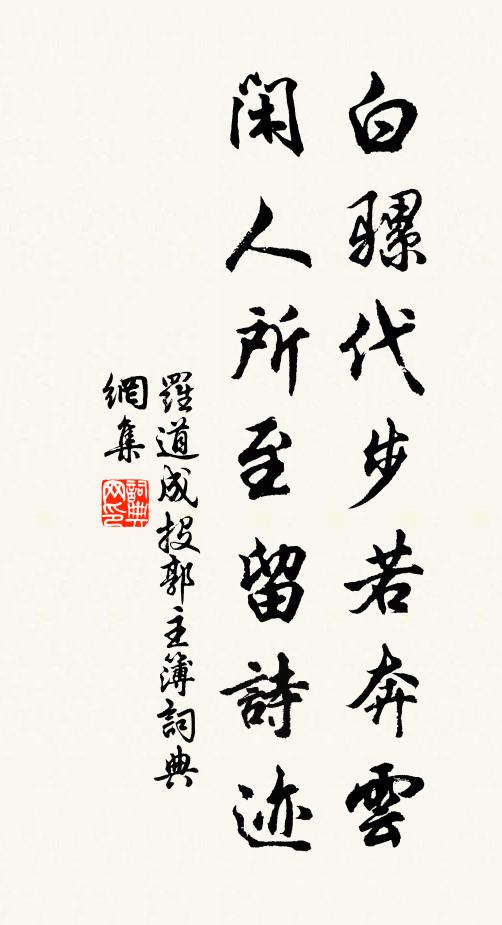 白騾代步若奔雲
閑人所至留詩迹
羅道成投郭主簿詞典
網集
詞典
网印